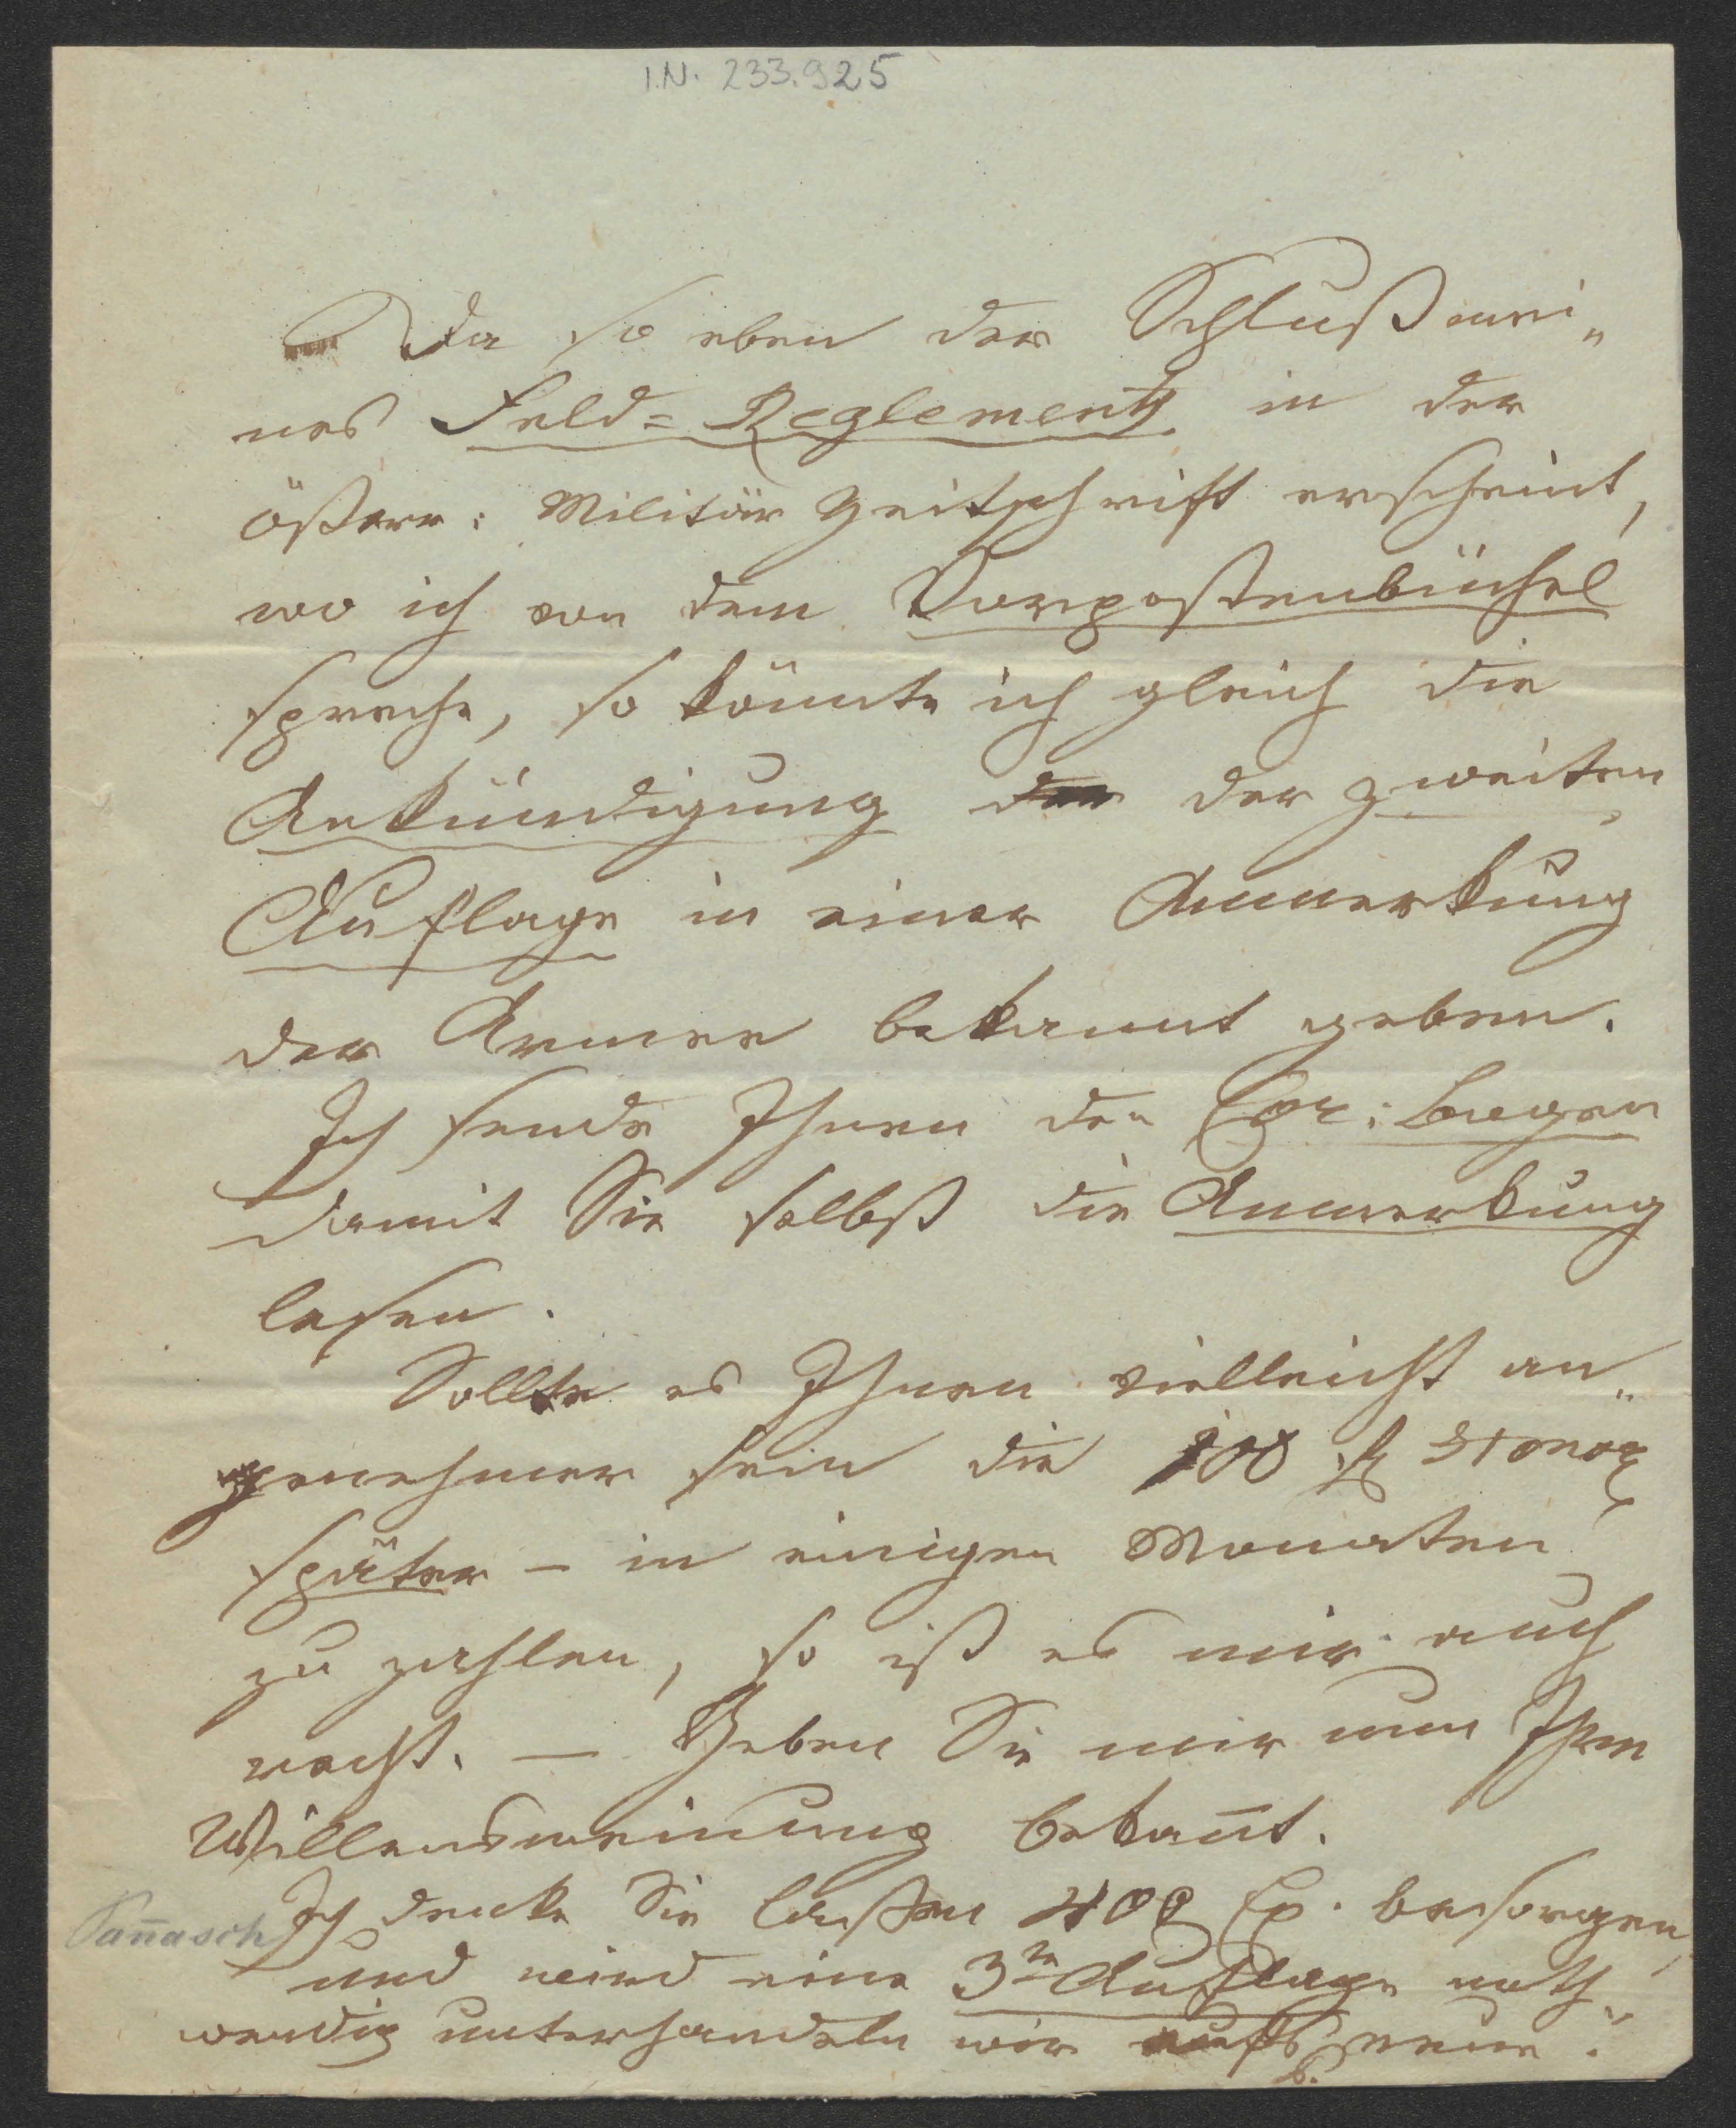 I.N. 233.925
Da so eben der Schluß mei„
nes Feld-Reglements in der
österr: Militär Zeitschrift erscheint,
wo ich von dem Vorpostenbüchel
spreche, so könnte ich gleich die
Ankündigung der zweiten
Auflage in einer Anmerkung
der Armee bekannt geben.
Ich sende Ihnen den Cor: bogen
damit Sie selbst die Anmerkung
lesen.
Sollte es Ihnen vielleicht an„
genehmer sein die 100 f Honor
später – in einigen Monaten
zu zahlen, so ist es mir auch
recht. – Geben Sie mir nun Ihre
Willensmeinung bekan̄t.
Ich denke Sie lassen 400 Ex. besorgen,
und wird eine 3te Auflage noth„
wendig unterhandeln wir aufs neue.